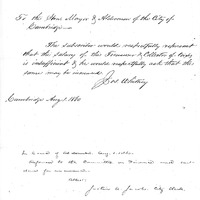 To the Hon. Mayor & Aldermen of the City of
Cambridge
The subscriber would respectfully represent
that the salary of the Treasurer & Collector of taxes
is insufficient & he would respectfully ask that the
same may be increased.
Jos. Whitney
Cambridge Augt. 1860
In Board of Aldermen, Aug. 1860.
Referred to the Committee on Finance
for concurrence.
Attest,
Justin A. Jacobs, City Clerk.